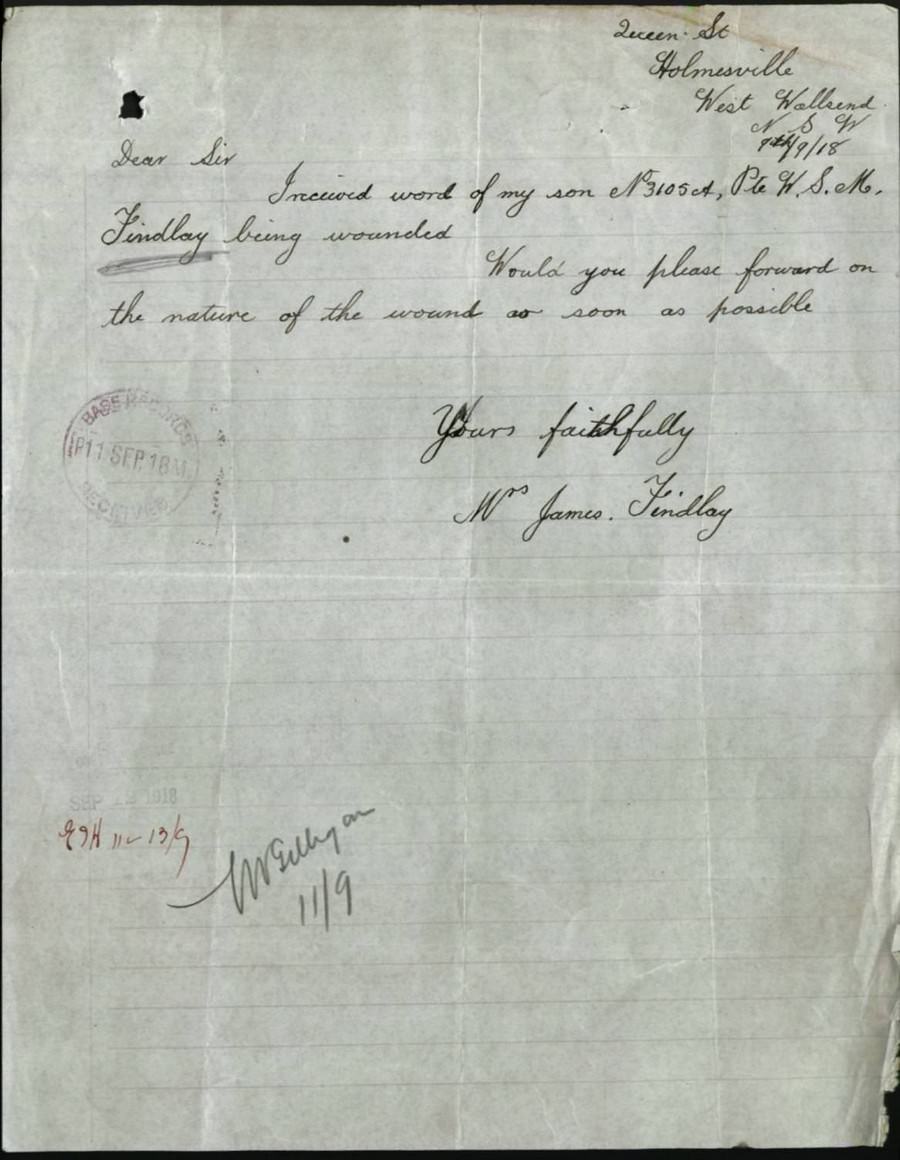 Queen St
Holmesville
West Wallsend
N S W
9th/9/18
Dear Sir
I received word of my son No 3105A, Pte W. S. M.
Findlay being wounded
Would you please forward on
the nature of the wound as soon as possible
Yours faithfully
Mrs James. Findlay
BASE RECORDS
11 SEP. 18
RECEIVED
SEP 1918
13/9
11/9